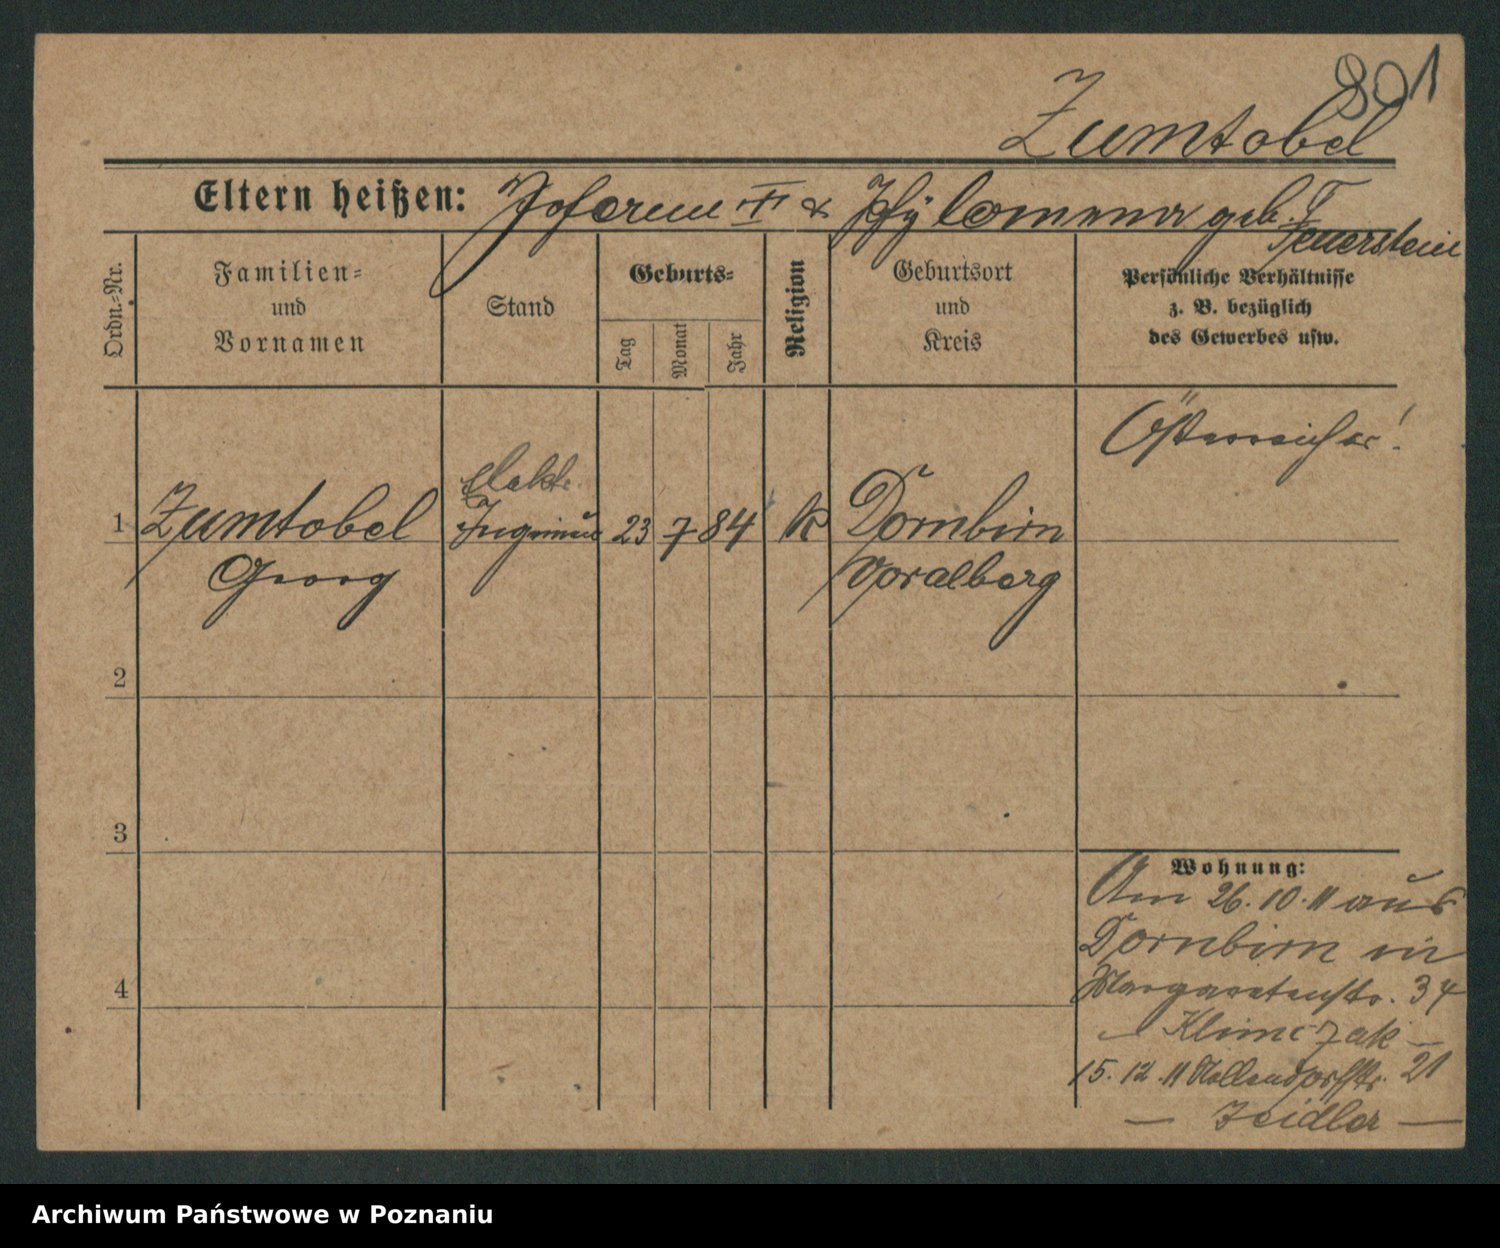 801
Zumtobel
Eltern heißen: Johann & Phylomena geb. Feuerstein
Ordn.-Nr.
Familien- und Vornamen
Stand
Geburts-
Tag
Monat
Jahr
Religion
Geburtsort und Kreis
Persönliche Verhältnisse
z. B. bezüglich
des Gewerbes usw.
Österreicher!
1 Zumtobel Elektr. Ingenieur 23 7 84 k Dornbirn
Georg Voralberg
2
3
4
Wohnung:
Am 26.10.11 aus
Dornbirn in
Margaretenstr. 34
– Klimczak –
15.12.11 Nollendorfstr. 21
– Zeidler –
Archiwum Państwowe w Poznaniu